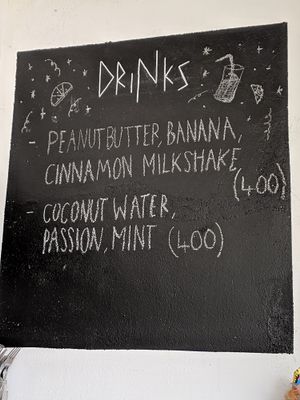 DRINKS
- PEANUTBUTTER, BANANA,
CINNAMON MILKSHAKE
(400)
- COCONUT WATER,
PASSION, MINT (400)